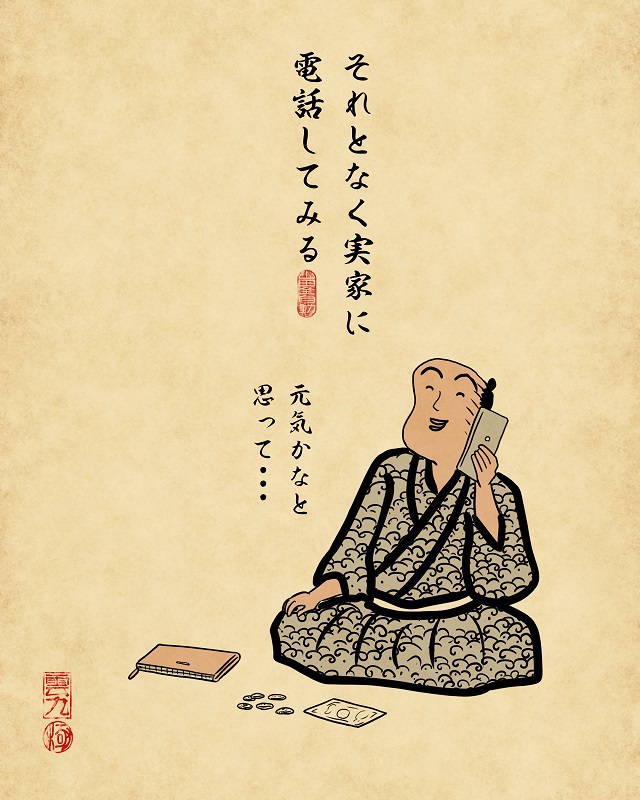 それとなく実家に
電話してみる
元気かなと
思って・・・